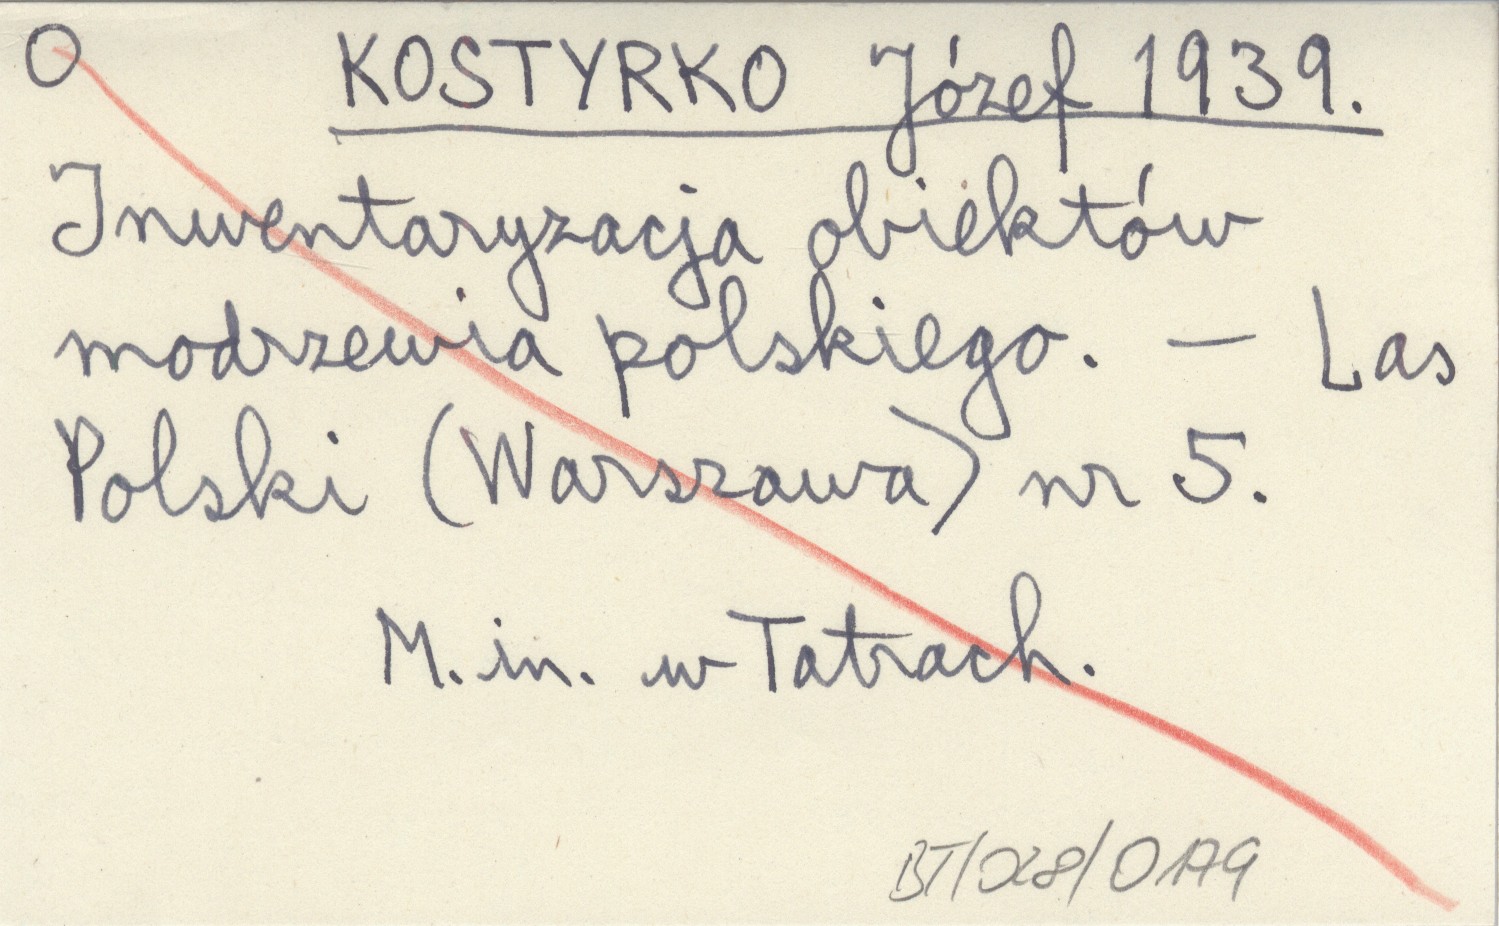 O KOSTYRKO Józef 1939.
Inwentaryzacja obiektów
modrzewia polskiego. — Las
Polski (Warszawa) nr 5.
M. in. w Tatrach.
BT/028/0179